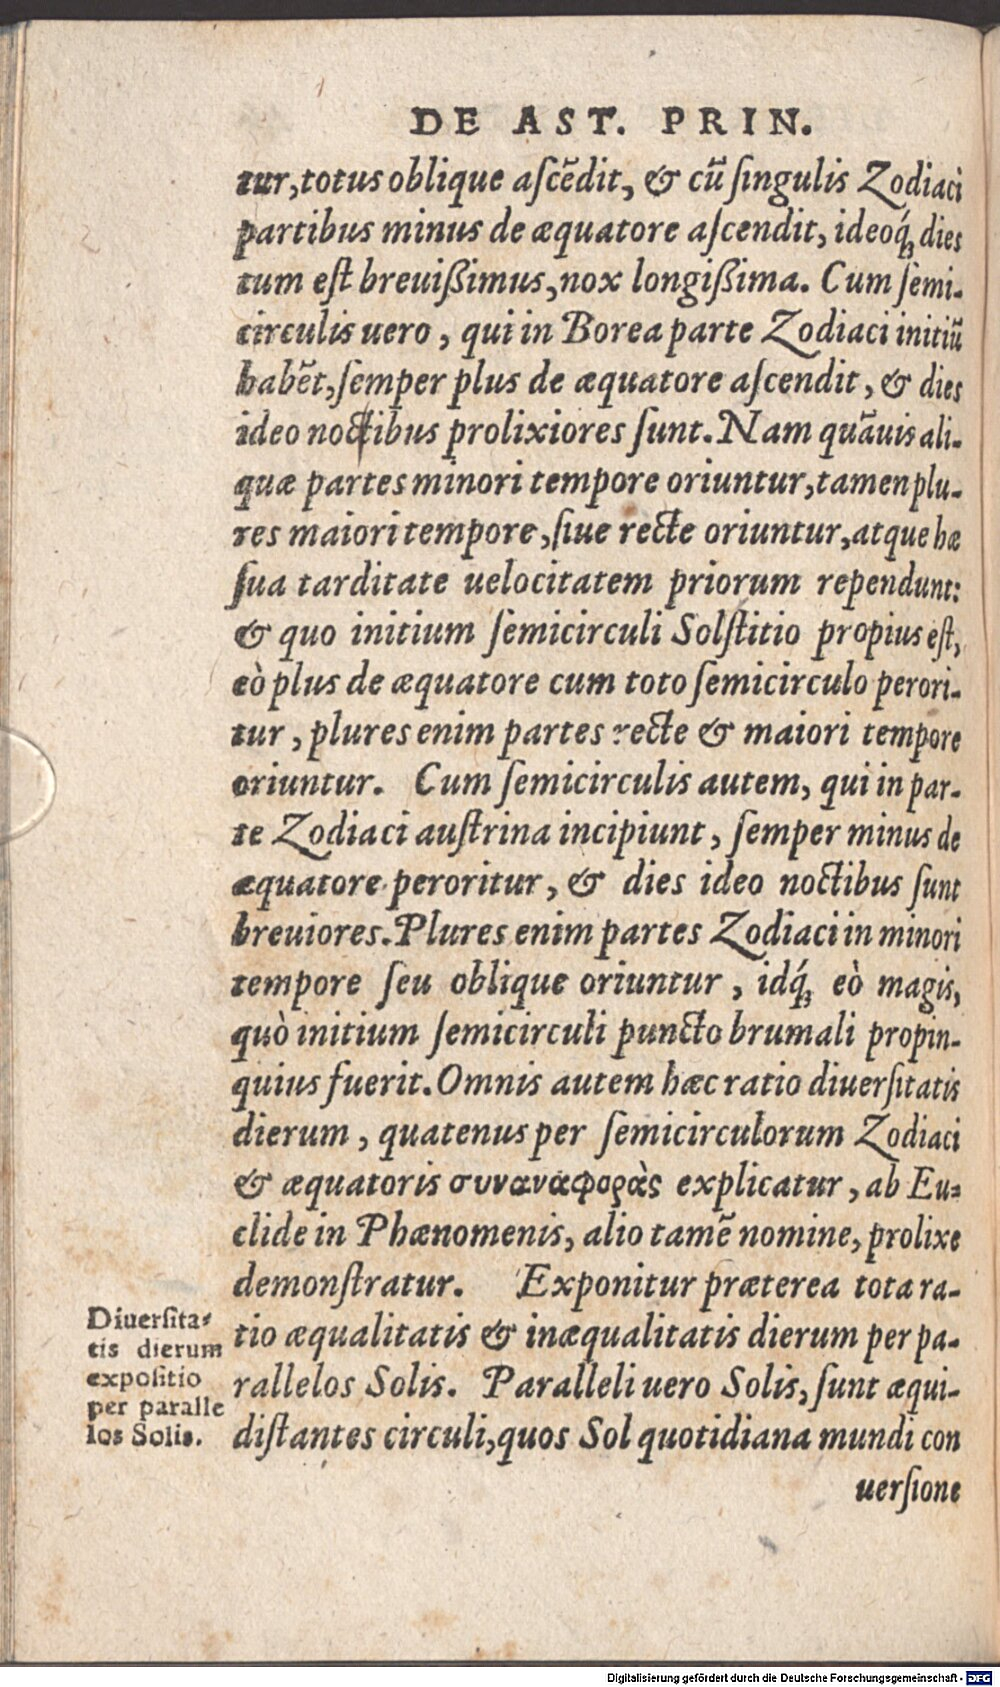 DE AST. PRIN.
tur, totus oblique ascēdit, & cū singulis Zodiaci
partibus minus de æquatore ascendit, ideoq́; dies
tum est breuißimus, nox longißima. Cum semi-
circulis uero, qui in Borea parte Zodiaci initiū
habēt, semper plus de æquatore ascendit, & dies
ideo noctibus prolixiores sunt. Nam quāuis ali-
quæ partes minori tempore oriuntur, tamen plu-
res maiori tempore, siue recte oriuntur, atque hæ
sua tarditate uelocitatem priorum rependunt:
& quo initium semicirculi Solstitio propius est,
eò plus de æquatore cum toto semicirculo perori-
tur, plures enim partes recte & maiori tempore
oriuntur. Cum semicirculis autem, qui in par-
te Zodiaci austrina incipiunt, semper minus de
æquatore peroritur, & dies ideo noctibus sunt
breuiores. Plures enim partes Zodiaci in minori
tempore seu oblique oriuntur, idq́; eò magis,
quò initium semicirculi puncto brumali propin-
quius fuerit. Omnis autem hæc ratio diuersitatis
dierum, quatenus per semicirculorum Zodiaci
& æquatoris συναναφορὰς explicatur, ab Eu-
clide in Phænomenis, alio tamē nomine, prolixe
demonstratur. Exponitur præterea tota ra-
tio æqualitatis & inæqualitatis dierum per pa-
rallelos Solis. Paralleli uero Solis, sunt æqui-
distantes circuli, quos Sol quotidiana mundi con
uersione
Diuersita-
tis dierum
expositio
per paralle
los Solis.
Digitalisierung gefördert durch die Deutsche Forschungsgemeinschaft - DFG